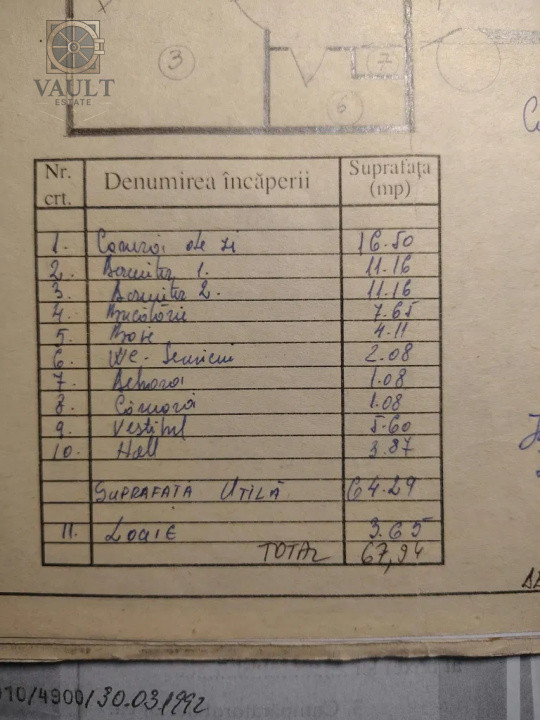 VAULT
ESTATE
3
7
6
Nr. crt. Denumirea încăperii Suprafaţa (mp)
1. Camera de zi 16.50
2. Dormitor 1. 11.16
3. Dormitor 2. 11.16
4. Bucătărie 7.65
5. Baie 4.11
6. WC-Serviciu 2.08
7. 1.08
8. Cămară 1.08
9. Vestibul 5.60
10. Hall 3.87
SUPRAFAŢA UTILĂ 64.29
11. LOGIE 3.65
TOTAL 67,94
010/4900/30.03.1992